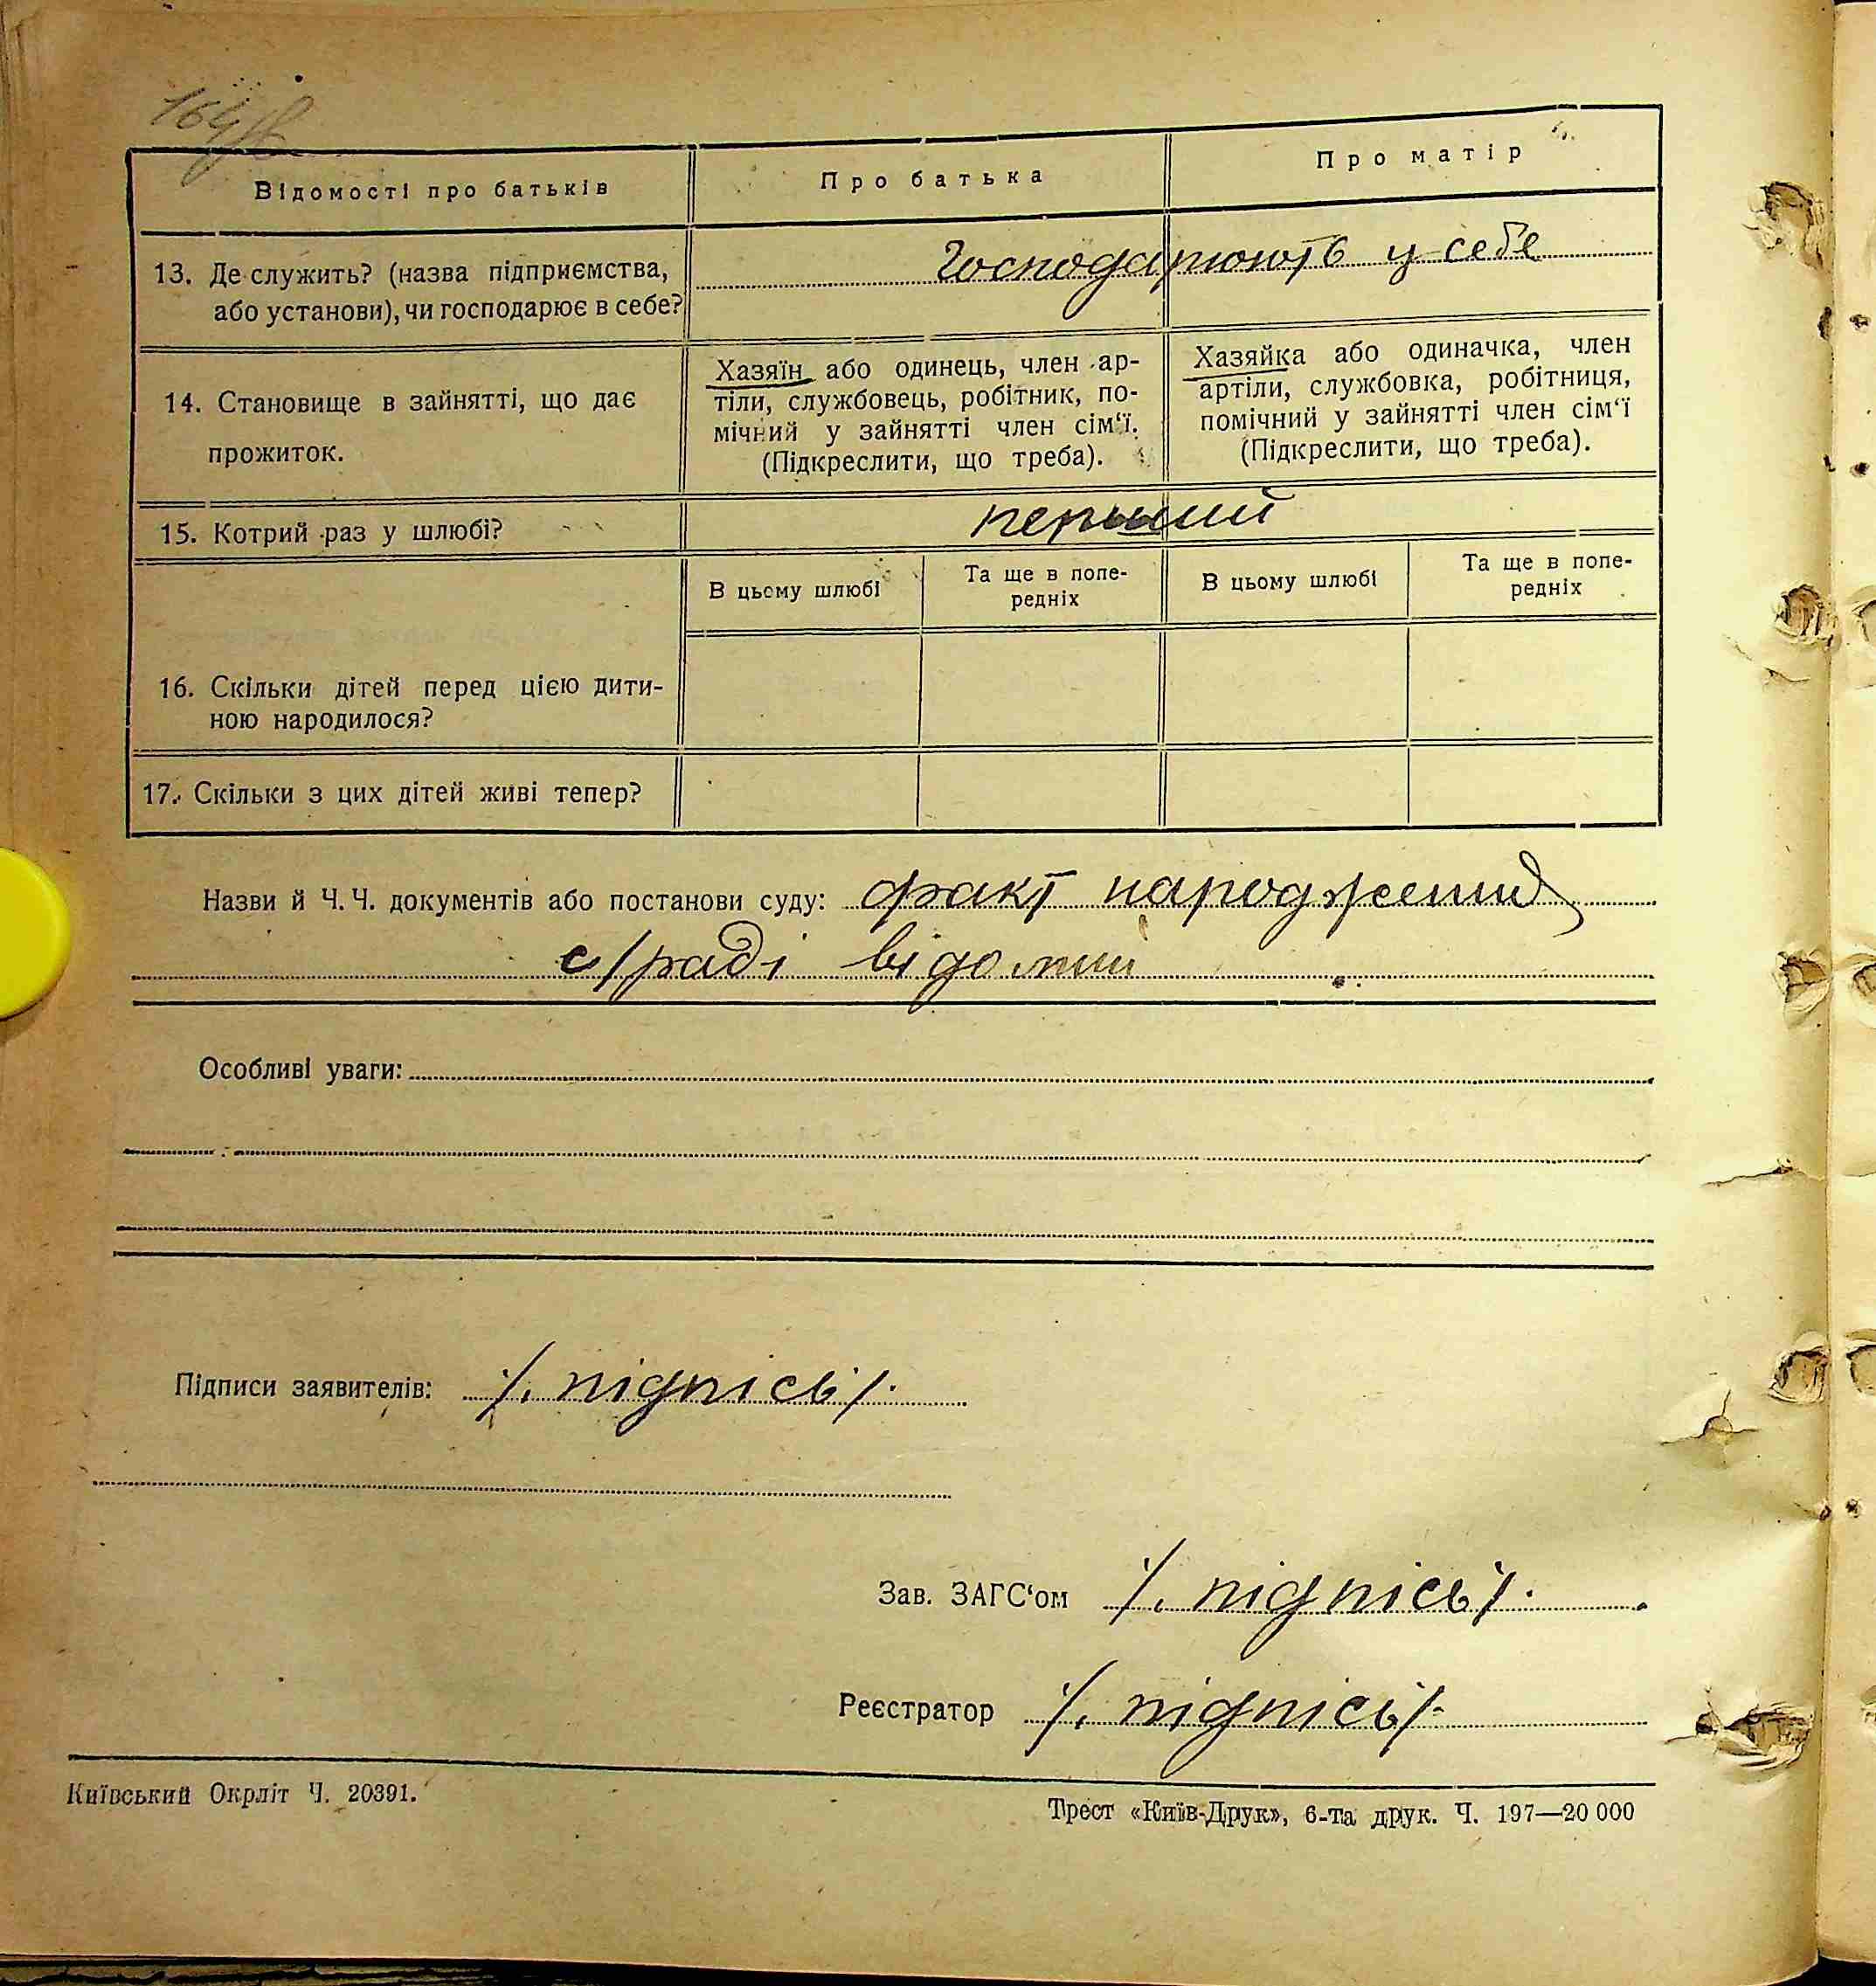 164
Відомості про батьків
Про батька
Про матір
13. Де служить? (назва підприємства,
або установи), чи господарює в себе?
Господарюють у себе
14. Становище в зайнятті, що дає
прожиток.
Хазяїн або одинець, член ар-
тіли, службовець, робітник, по-
мічний у зайнятті член сім‘ї.
(Підкреслити, що треба).
Хазяйка або одиначка, член
артіли, службовка, робітниця,
помічний у зайнятті член сім‘ї
(Підкреслити, що треба).
15. Котрий раз у шлюбі?
перший
В цьому шлюбі
Та ще в попе-
редніх
В цьому шлюбі
Та ще в попе-
редніх
16. Скільки дітей перед цією дити-
ною народилося?
17. Скільки з цих дітей живі тепер?
Назви й Ч. Ч. документів або постанови суду: факт народження
с/раді відомий
Особливі уваги:
Підписи заявителів: /. підпісь/.
Зав. ЗАГС‘ом /. підпісь/.
Реєстратор /. підпісь/.
Київський Окрліт Ч. 20391.
Трест «Київ-Друк», 6-та друк. Ч. 197—20 000